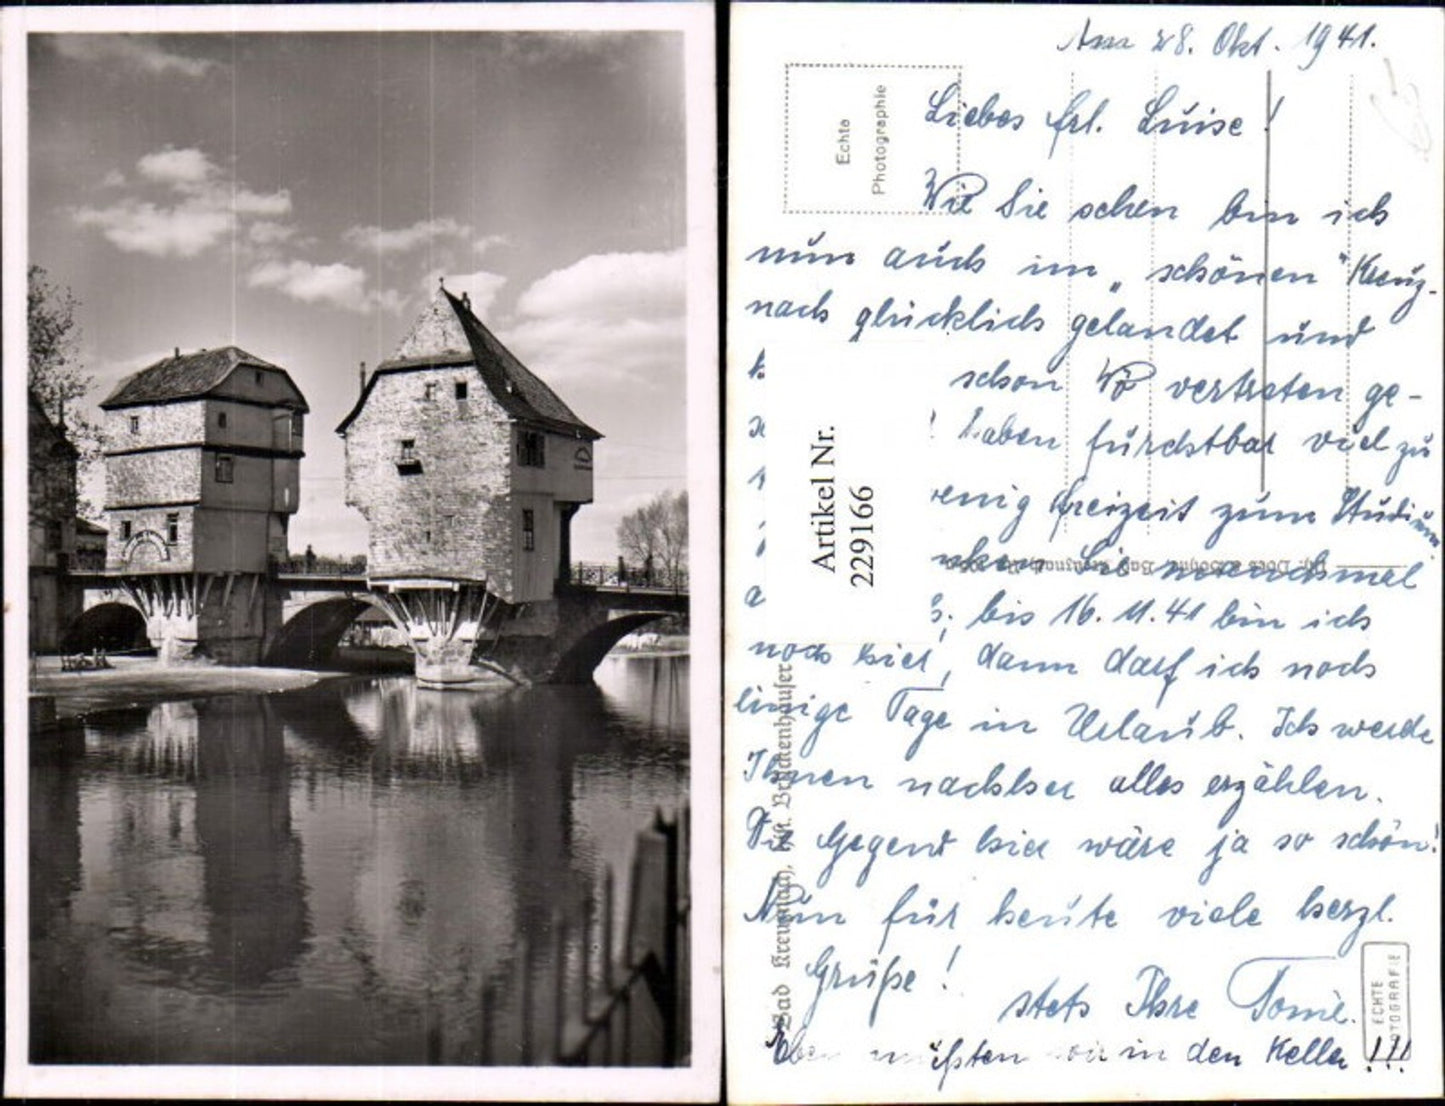 Am 28. Okt. 1941.
Echte
Photographie
Liebes Frl. Luise!
Wie Sie sehen bin ich
nun auch im „schönen" Kreuz-
nach glücklich gelandet und
schon vertreten ge-
! haben furchtbar viel zu
wenig Freizeit zum Studium
Sie manchmal
bis 16. 11. 41 bin ich
noch hier, dann darf ich noch
einige Tage in Urlaub. Ich werde
Ihnen nachher alles erzählen.
Die Gegend hier wäre ja so schön!
Nun für heute viele herzl.
Grüße!
stets Ihre Tonie.
Eben mußten wir in den Keller!!!
Artikel Nr.
229166
Bad Kreuznach, Hist. Brückenhäuser
ECHTE
FOTOGRAFIE